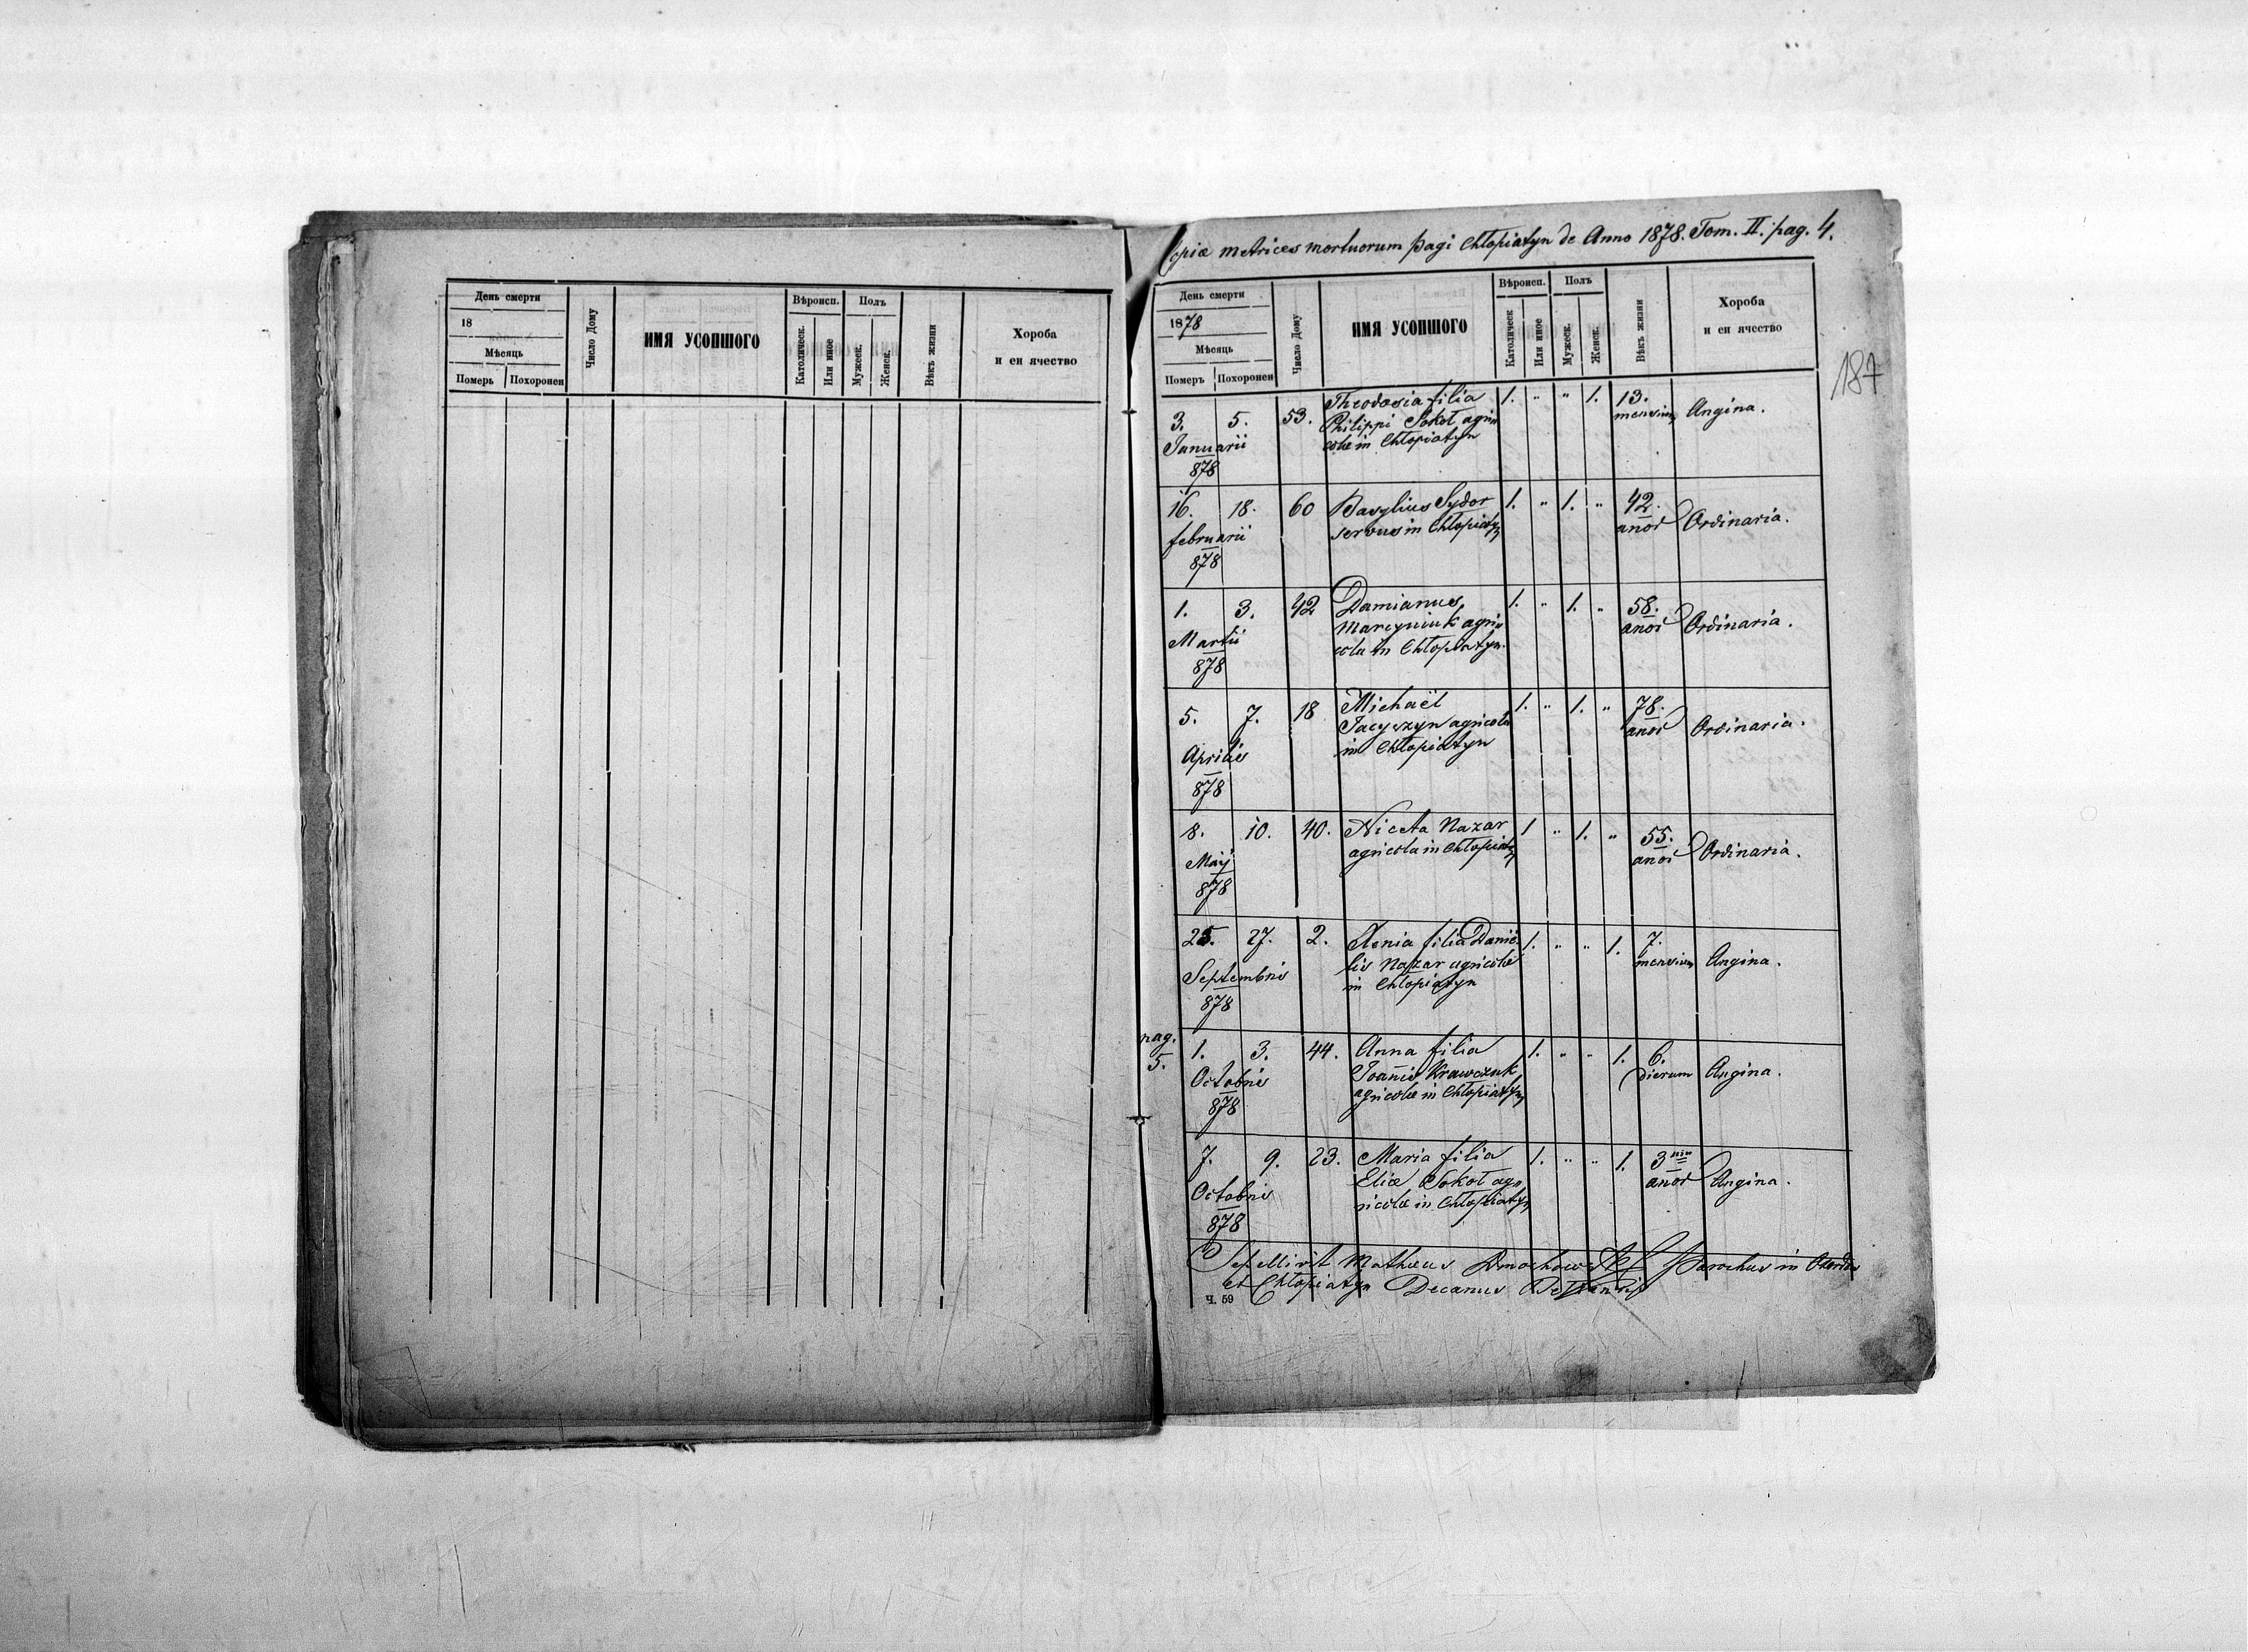 День смерти
18
Мѣсяць
Померъ Похоронен
Число Дому
ИМЯ УСОПШОГО
Вѣроисп.
Католическ.
Или иное
Полъ
Мужеск.
Женск.
Вѣкъ жизни
Хороба
и еи ячество
Copiæ metrices mortuorum pagi Chłopiatyn de Anno 1878. Tom. II. pag. 4.
187
День смерти
1878
Мѣсяць
Померъ Похоронен
Число Дому
ИМЯ УСОПШОГО
Вѣроисп.
Католическ
Или иное
Полъ
Мужеск.
Женск.
Вѣкъ жизни
Хороба
и еи ячество
3. 5. 53. Theodosia filia 1. " " 1. 13. Angina.
Januarii Philippi Sokoł agri mensium
878 colæ in Chłopiatyn
16. 18. 60 Basylius Sydor 1. " 1. " 42. Ordinaria.
februarii servus in Chłopiatyn anor
878
1. 3. 42 Damianus 1. " 1. " 58. Ordinaria.
Martii Marcyniuk agri anor
878 cola in Chłopiatyn.
5. 7. 18 Michaël 1. " 1. " 78. Ordinaria.
Aprilis Jacyszyn agricola anor
878 in Chłopiatyn
8. 10. 40. Niceta Nazar 1 " 1. " 55. Ordinaria.
Maij agricola in Chłopiatyn anor
878
25. 27. 2. Xenia filia Danie 1. " " 1. 7. Angina.
Septembris lis Nazar agricolæ mensium
878 in Chłopiatyn
pag.
5.
1. 3. 44. Anna filia 1. " " 1. 6. Angina.
Octobris Joanis Krawczuk dierum
878 agricolæ in Chłopiatyn
7. 9. 23. Maria filia 1. " " 1. 3 Angina.
Octobris Eliæ Sokoł ag anor
878 ricolæ in Chłopiatyn
Sepellivit Mathæus Parochus in
et Chłopiatyn Decanus
Ч. 59